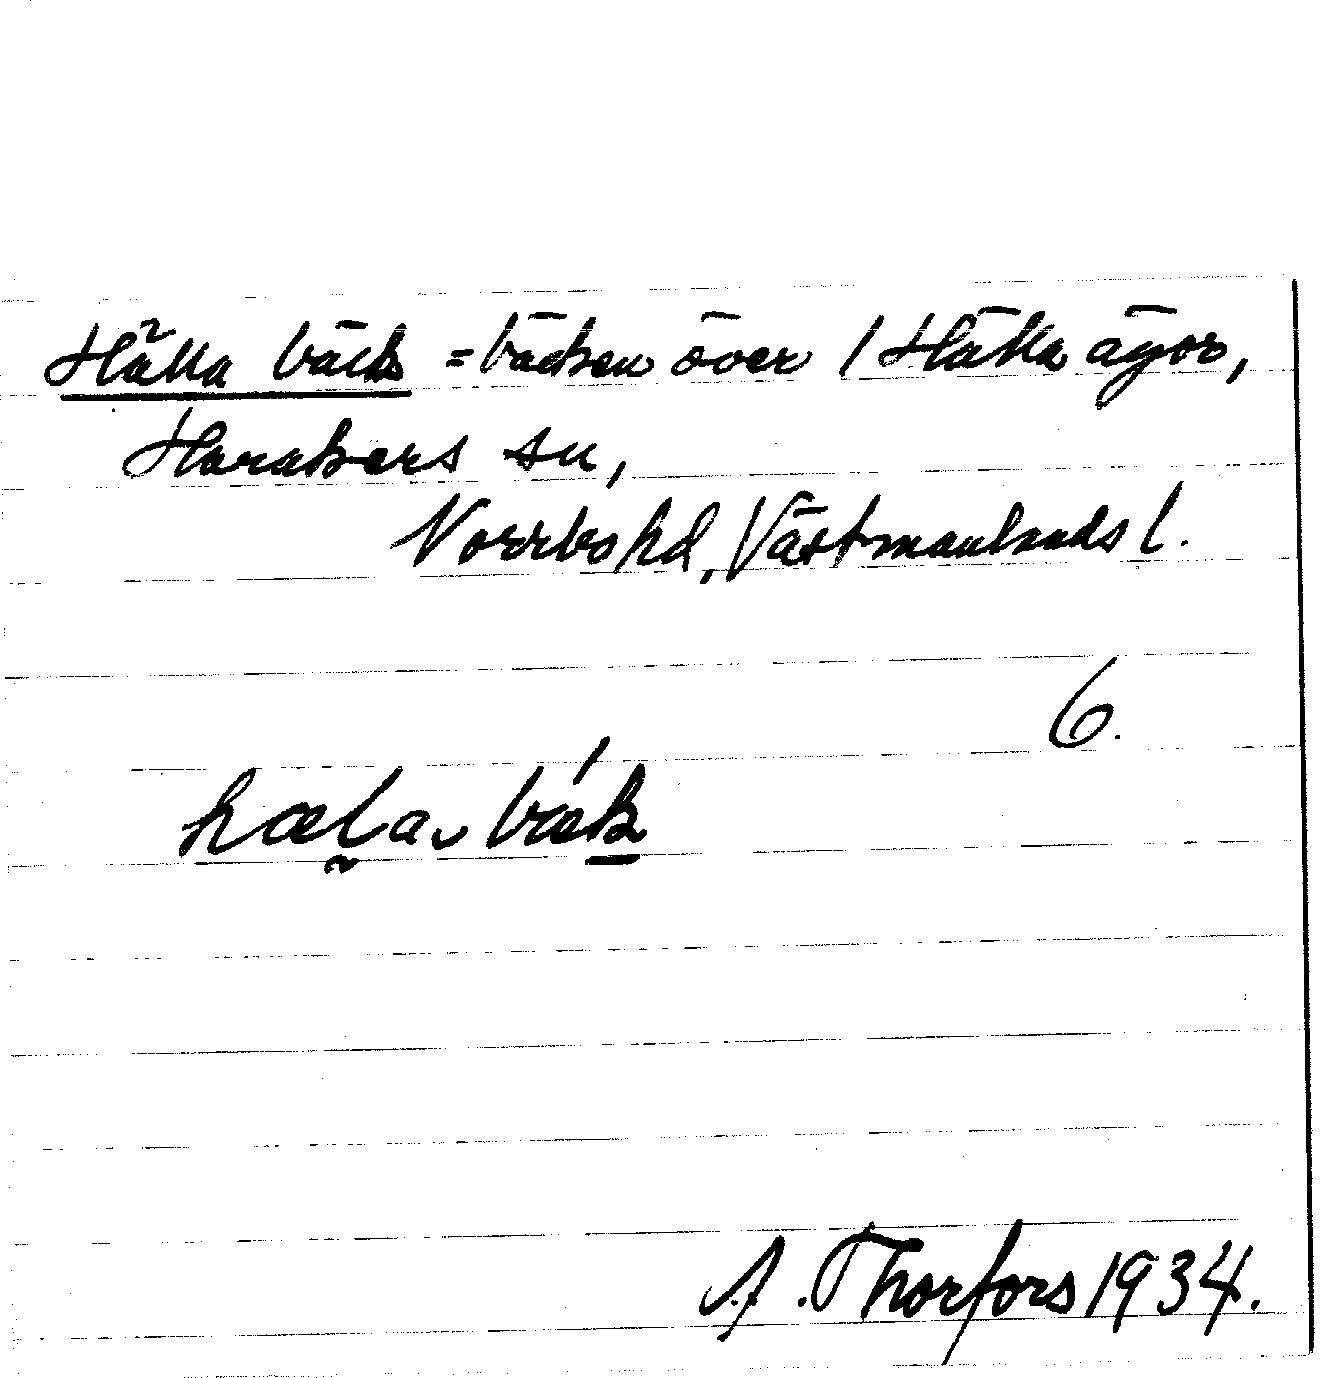 Hälla bäck = bäcken över / Hälla ägor,
Harakers sn,
Norrbo hd, Västmanlands l.
6.
hæla bǽk
A. Thorfors 1934.